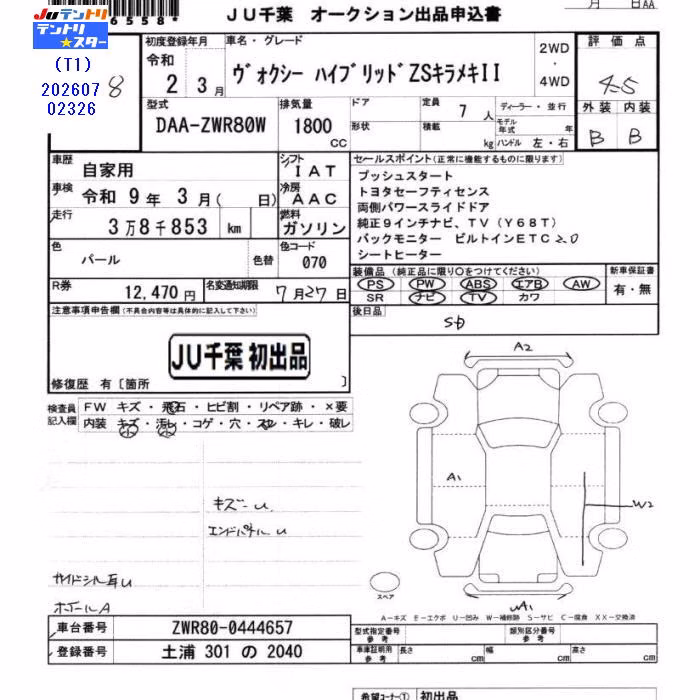 6558*
JU千葉 オークション出品申込書
月 日AA
JUテントリ
テントリ★スター
(T1)
202607
02326
8
初度登録年月
令和
2 3月
車名・グレード
ヴォクシー ハイブリッドZSキラメキII
2WD
・
4WD
評価点
4.5
外装 内装
B B
型式
DAA-ZWR80W
排気量
1800
CC
ドア
形状
定員 7 人
積載 kg
ディーラー・並行
モデル年式 年
ハンドル 左・右
車歴 自家用
車検 令和 9年 3月( 日)
走行 3万8千853 km
シフト IAT
冷房 AAC
燃料 ガソリン
色 パール 色替
色コード 070
R券 12,470円
名変通知期限 7月27日
セールスポイント(正常に機能するものに限ります)
プッシュスタート
トヨタセーフティセンス
両側パワースライドドア
純正9インチナビ、TV(Y68T)
バックモニター ビルトインETC2.0
シートヒーター
装備品(純正品に限り○をつけてください)
PS PW ABS エアB AW
SR ナビ TV カワ
新車保証書
有・無
後日品
SD
注意事項申告欄(不具合内容等は具体的に記入して下さい)
JU千葉 初出品
修復歴 有〔箇所 〕
検査員記入欄
FW キズ・飛石・ヒビ割・リペア跡・×要
内装 キズ・汚レ・コゲ・穴・スレ・キレ・破レ
キズ-U
エンドパネルU
サイドシル耳U
ホイールA
A2
A1
W2
スペア
A-キズ E-エクボ U-凹み W-補修跡 S-サビ C-腐食 XX-交換済
車台番号 ZWR80-0444657
登録番号 土浦 301 の 2040
型式指定番号 参考
類別区分番号 参考
車庫証明用 参考 長さ cm 幅 cm 高さ cm
希望コーナー① 初出品